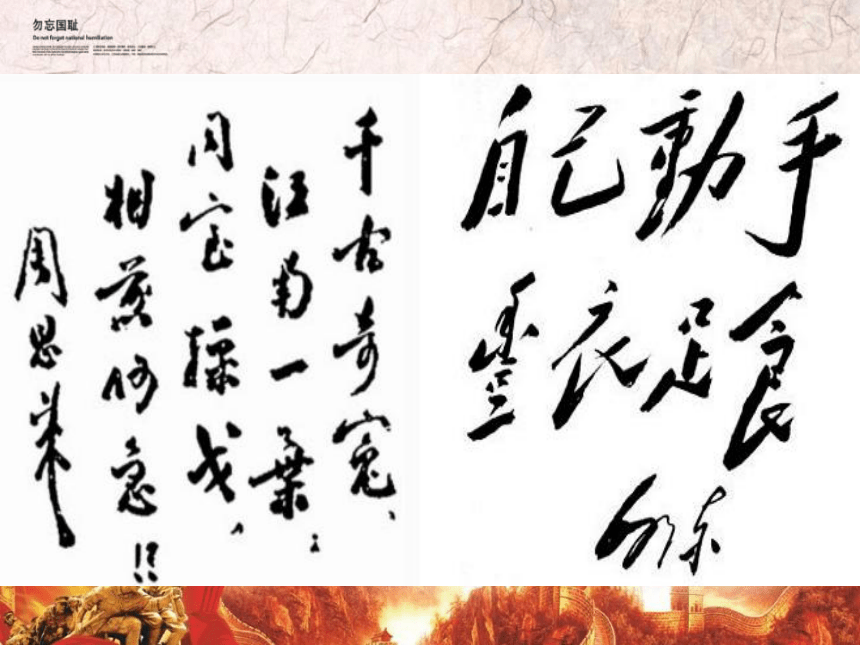 勿忘国耻
Do not forget national humiliation
千古奇冤、
江南一葉；
同室操戈、
相煎何急！！
周恩来
自己動手
豊衣足食
毛泽东